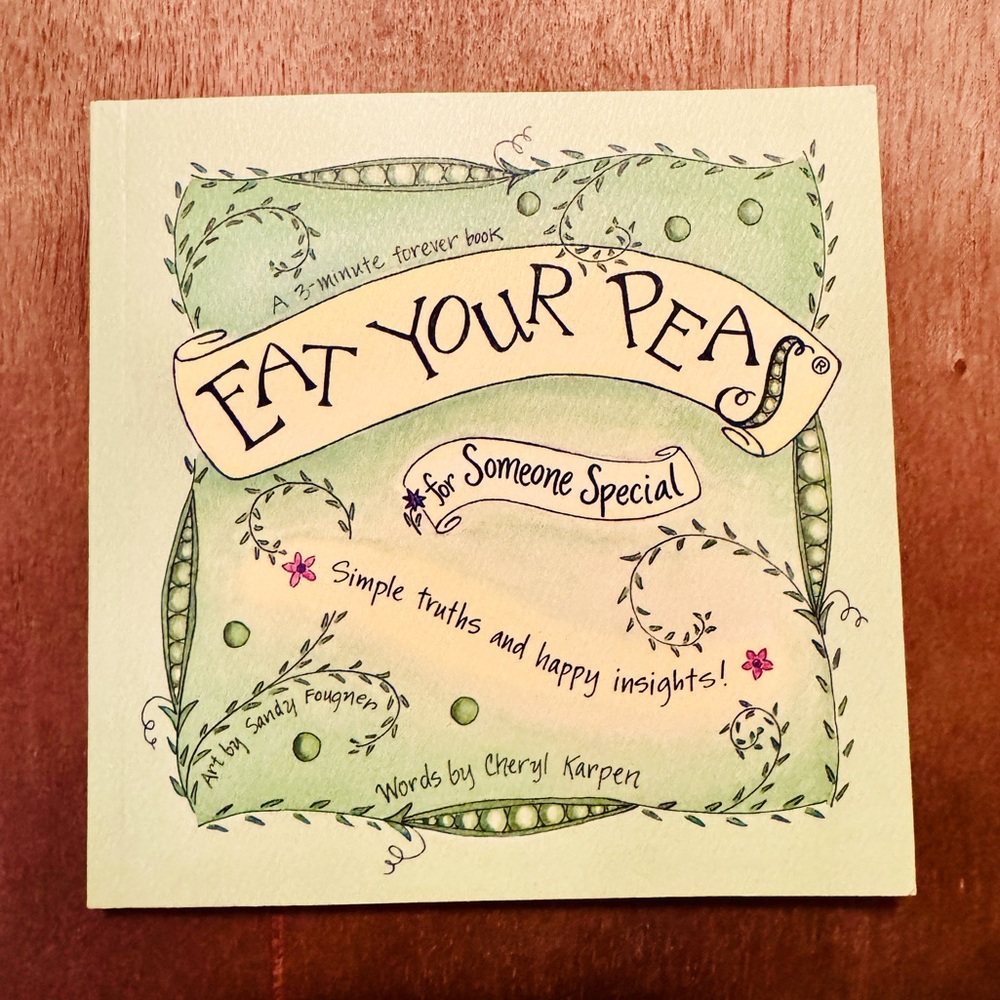 A 3-minute forever book
EAT YOUR PEAS®
for Someone Special
Simple truths and happy insights!
Art by Sandy Fougner
Words by Cheryl Karpen